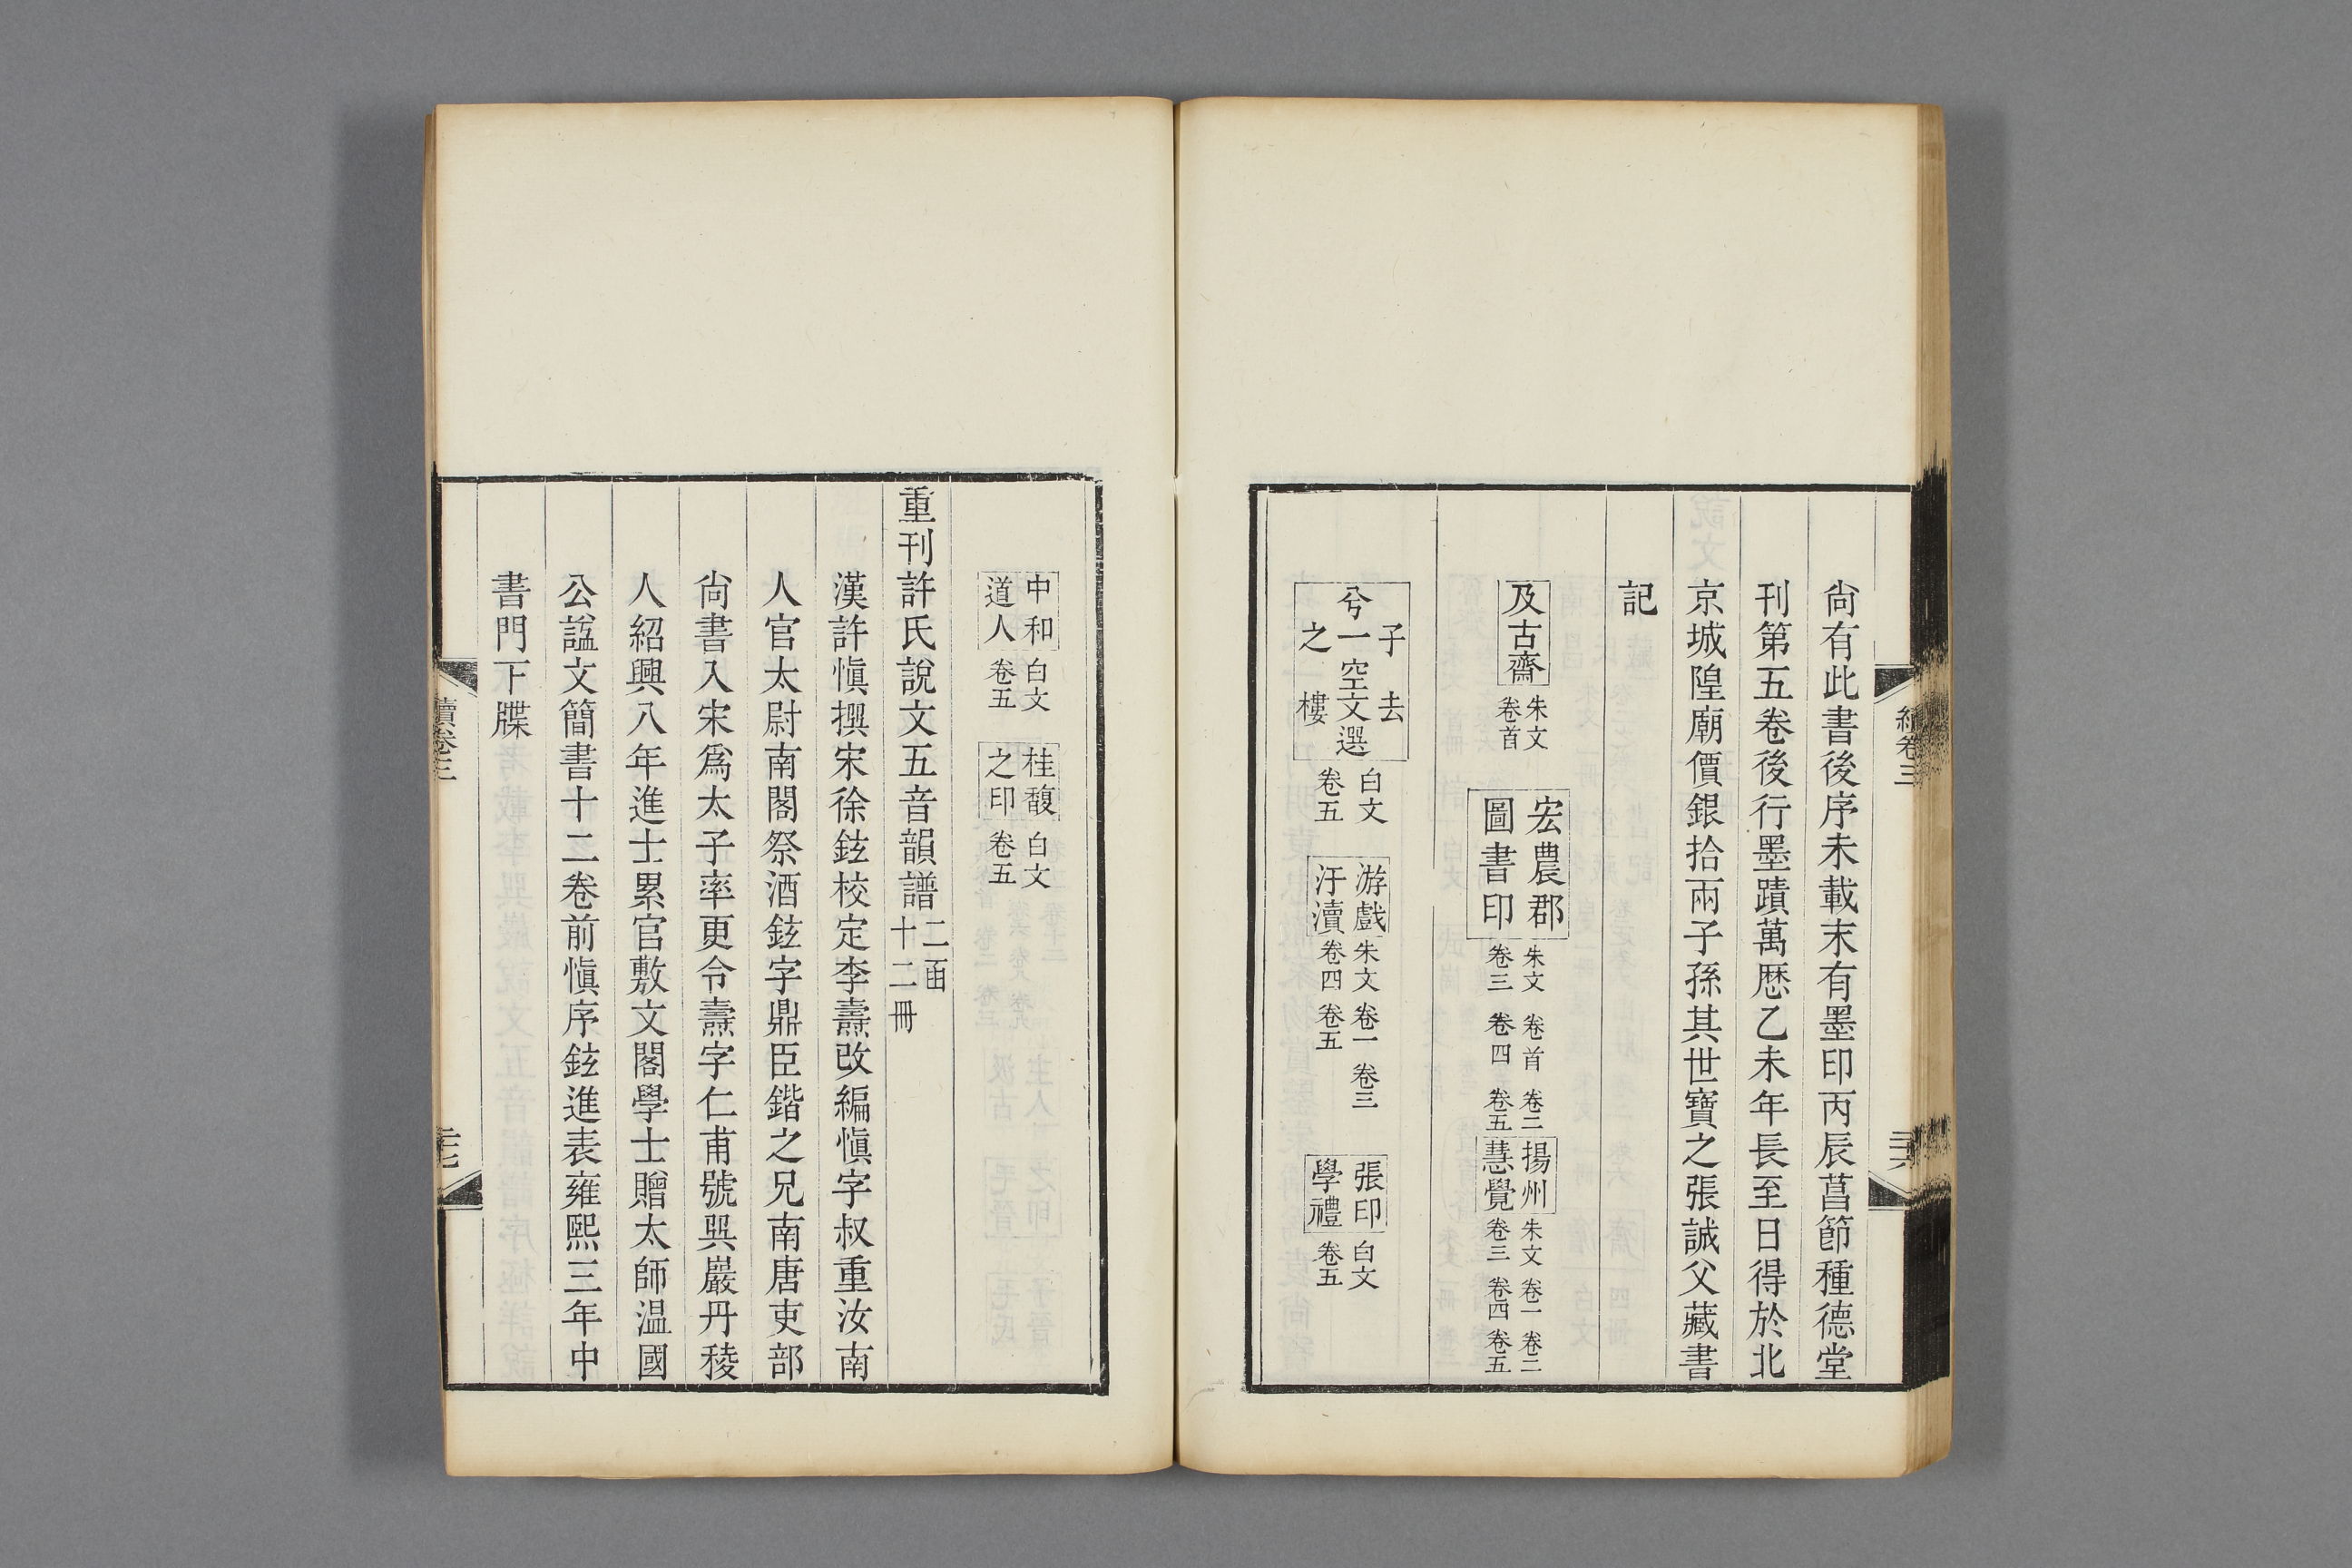 尙有此書後序未載末有墨印丙辰菖節種德堂
刊第五卷後行墨蹟萬厯乙未年長至日得於北
京城隍廟價銀拾兩子孫其世寶之張誠父藏書
記
及古齋 朱文 卷首 宏農郡圖書印 朱文 卷首 卷二 卷三 卷四 卷五 揚州慧覺 朱文 卷一 卷二 卷三 卷四 卷五
子去兮一空文選之樓 白文 卷五 游戲汙瀆 朱文 卷一 卷三 卷四 卷五 張印學禮 白文 卷五
續卷三
二十六
中和道人 白文 卷五 桂馥之印 白文 卷五
重刊許氏說文五音韻譜 二函 十二冊
漢許愼撰宋徐鉉校定李燾改編愼字叔重汝南
人官太尉南閣祭酒鉉字鼎臣鍇之兄南唐吏部
尙書入宋爲太子率更令燾字仁甫號巽巖丹稜
人紹興八年進士累官敷文閣學士贈太師温國
公諡文簡書十二卷前愼序鉉進表雍熙三年中
書門下牒
續卷三
二十七